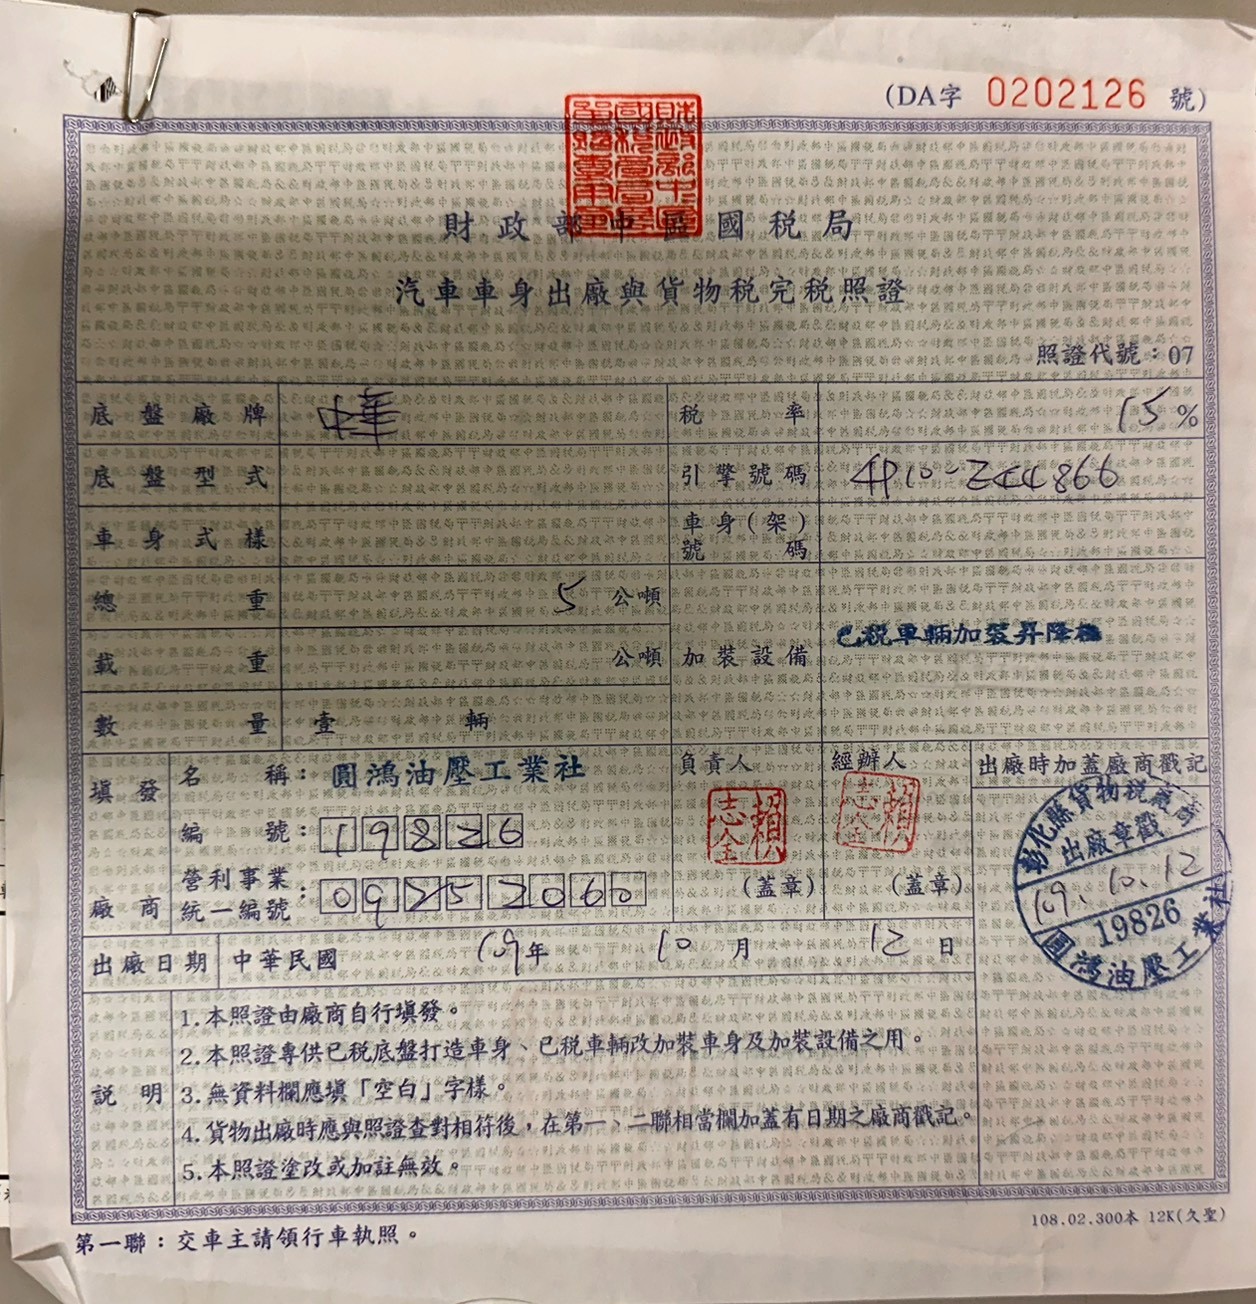 (DA字 0202126 號)
財政部中區國稅局
汽車車身出廠與貨物稅完稅照證
照證代號：07
底盤廠牌 中華 稅率 15%
底盤型式 引擎號碼 4P10-Z44866
車身式樣 車身(架)號碼
總重 5 公噸
載重 公噸 加裝設備 已稅車輛加裝昇降機
數量 壹 輛
填發廠商 名稱：圓鴻油壓工業社 負責人 經辦人 出廠時加蓋廠商戳記
賴志全 賴志全
編號：19826
營利事業統一編號：09252060 (蓋章) (蓋章)
彰化縣貨物稅廠商
出廠章戳
109. 10. 12
19826
圓鴻油壓工業社
出廠日期 中華民國 109年 10月 12日
說明
1.本照證由廠商自行填發。
2.本照證專供已稅底盤打造車身、已稅車輛改加裝車身及加裝設備之用。
3.無資料欄應填「空白」字樣。
4.貨物出廠時應與照證查對相符後，在第一、二聯相當欄加蓋有日期之廠商戳記。
5.本照證塗改或加註無效。
108.02.300本 12K(久聖)
第一聯：交車主請領行車執照。